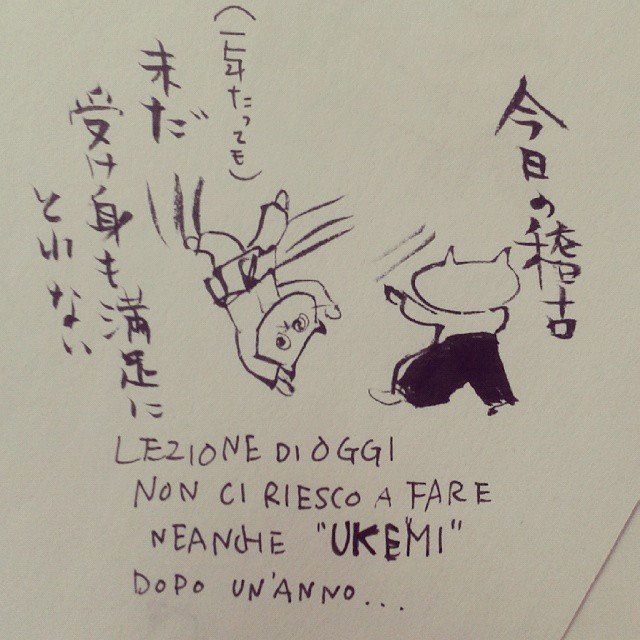 今日の稽古
(一年たっても)
未だ
受け身も満足に
とれない
LEZIONE DI OGGI
NON CI RIESCO A FARE
NEANCHE "UKEMI"
DOPO UN'ANNO...